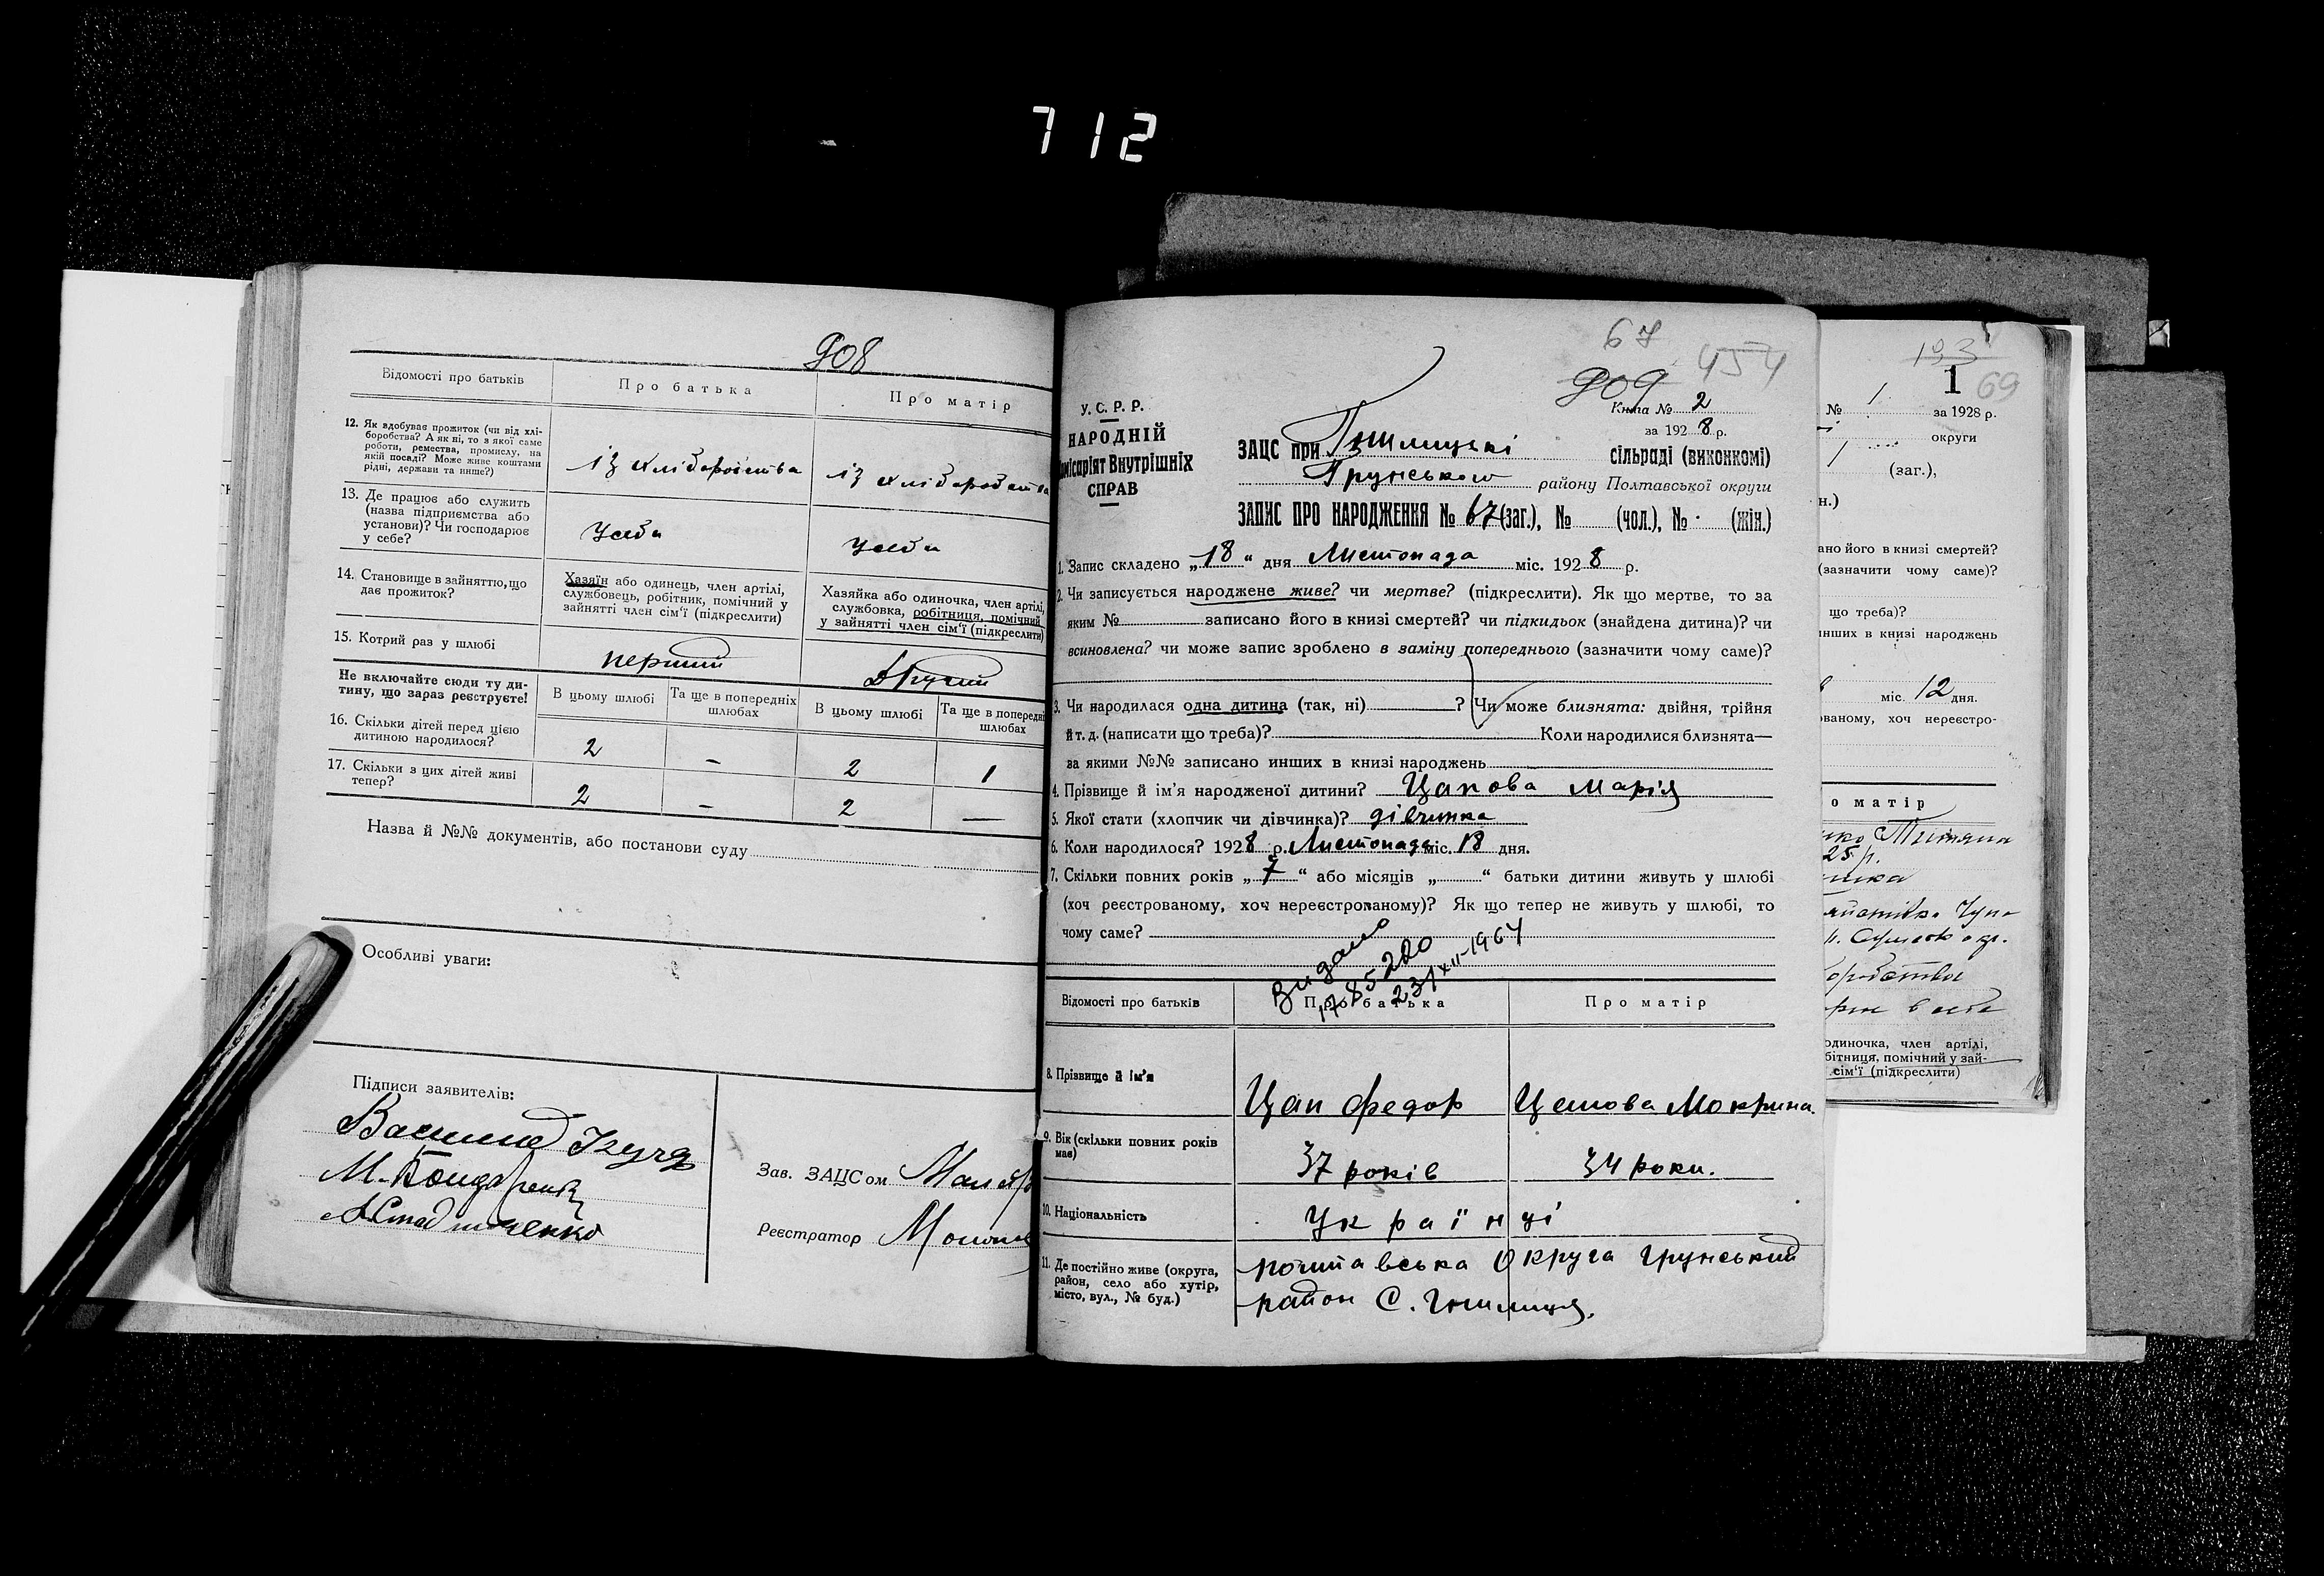 712
908
Відомості про батьків
Про батька
Про матір
12. Як здобуває прожиток (чи від хлі-
боробства? А як ні, то з якої саме
роботи, ремества, промислу, на
якій посаді? Може живе коштами
рідні, держави та инше?)
із хліборобства
із хліборобства
13. Де працює або служить
(назва підприємства або
установи)? Чи господарює
у себе?
Усебе
Усебе
14. Становище в зайняттю, що
дає прожиток?
Хазяїн або одинець, член артілі,
службовець, робітник, помічний у
зайнятті член сім'ї (підкреслити)
Хазяйка або одиночка, член артілі,
службовка, робітниця, помічний
у зайнятті член сім'ї (підкреслити)
15. Котрий раз у шлюбі
перший
другий
Не включайте сюди ту ди-
тину, що зараз реєструєте!
В цьому шлюбі
Та ще в попередніх
шлюбах
В цьому шлюбі
Та ще в попередні
шлюбах
16. Скільки дітей перед цією
дитиною народилося?
2 - 2 1
17. Скільки з цих дітей живі
тепер?
2 - 2 —
Назва й №№ документів, або постанови суду
Особливі уваги:
Підписи заявителів:
М. Бондаренко
Зав. ЗАЦСом
Реєстратор
67
454
909
У. С. Р. Р.
НАРОДНІЙ
омісаріят Внутрішніх
СПРАВ
Книга № 2
за 1928 р.
ЗАЦС при Гнилицькі сільраді (виконкомі)
Грунського району Полтавської округи
ЗАПИС ПРО НАРОДЖЕННЯ № 67 (заг.), № (чол.), № (жін.)
1. Запис складено „18“ дня Листопада міс. 1928 р.
2. Чи записується народжене живе? чи мертве? (підкреслити). Як що мертве, то за
яким № записано його в книзі смертей? чи підкидьок (знайдена дитина)? чи
всиновлена? чи може запис зроблено в заміну попереднього (зазначити чому саме)?
3. Чи народилася одна дитина (так, ні) ? Чи може близнята: двійня, трійня
й т. д. (написати що треба)? Коли народилися близнята—
за якими №№ записано инших в книзі народжень
4. Прізвище й ім'я народженої дитини? Цапова Марія
5. Якої стати (хлопчик чи дівчинка)? дівчинка
6. Коли народилося? 1928 р. Листопада міс. 18 дня.
7. Скільки повних років „7“ або місяців „ “ батьки дитини живуть у шлюбі
(хоч реєстрованому, хоч нереєстрованому)? Як що тепер не живуть у шлюбі, то
чому саме?
Видано
1785220
23/XII-1964
Відомості про батьків
Про батька
Про матір
8. Прізвище й ім'я
Цап Федор
Цапова Мокрина.
9. Вік (скільки повних років
має)
37 років
34 роки.
10. Національність
Українці
11. Де постійно живе (округа,
район, село або хутір,
місто, вул., № буд.)
полтавська Округа грунський
район С. Гнилиця.
193
1
69
№ 1 за 1928 р.
округи
1 (заг.),
н.)
ано його в книзі смертей?
(зазначити чому саме)?
що треба)?
инших в книзі народжень
міс. 12 дня.
ованому, хоч нереєстро-
о матір
25 р.
одиночка, член артілі,
бітниця, помічний у зай-
сім'ї (підкреслити)